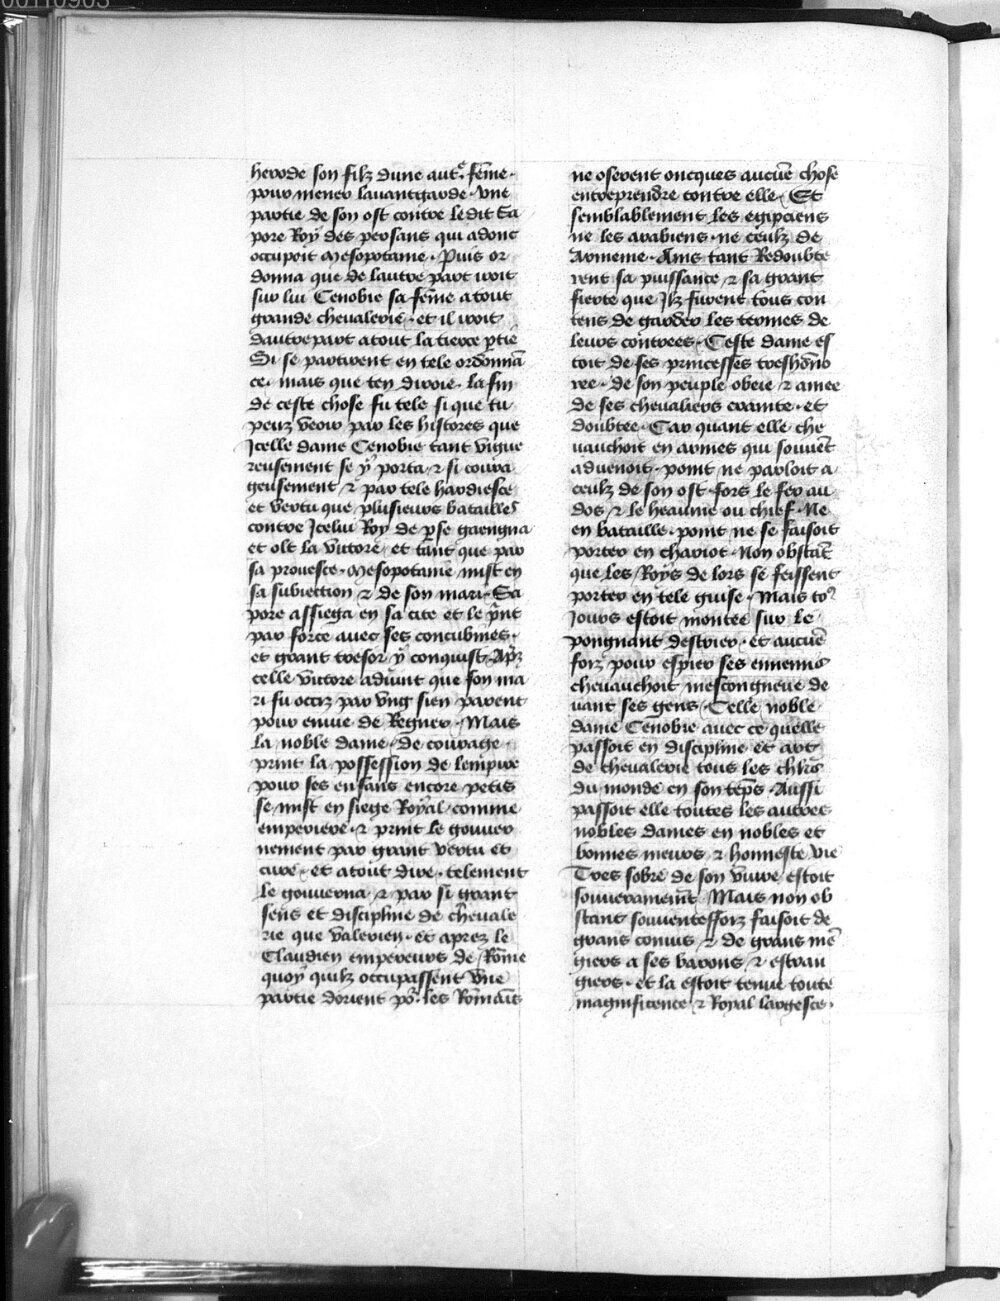 00110903
herode son filz dune autᵉ feme·
pour mener lauantgarde· vne
partie de son ost contre ledit Sa
pore Roy des persans qui adonc
occupoit Mesopotame· Puis or
donna que de lautre part iroit
sur lui Cenobie sa feme atout
grande cheualerie· et il iroit
dautre part atout la tierce ptie
Si se partirent en tele ordonnā
ce· mais que ten diroie· la fin
de ceste chose fu tele si que tu
peuz veoir par les histores que
Icelle dame Cenobie tant vigue
reusement se y porta ⁊ si coura
geusement ⁊ par tele hardiesce
et vertu que plusieurs batailles
contre Icelui Roy de pse gaengna
et olt la victore et tant que par
sa prouesce· Mesopotame mist en
sa subiection ⁊ de son mari· Sa
pore assiega en sa cite et le pīnt
par force auec ses concubines·
et grant tresor y conquist· Apz
celle victore aduint que son ma
ri fu occiz par vng sien parent
pour enuie de Regner· Mais
la noble dame· de courage·
print la possession de lempire
pour ses enfans encore petis
se mist en siege Royal· comme
emperiere· ⁊ print le gouuer
nement par grant vertu et
cure· et atout dire· telement
le gouuerna ⁊ par si grant
sens et discipline de cheuale
rie que Valerien· et aprez le
Claudien empereurs de Rome
quoy quilz occupassent vne
partie dorient poʳ les Romais
ne oserent oncques aucue chose
entreprendre contre elle· Et
semblablement les egipciens
ne les arabiens· ne ceulz de
Armenie· Ains tant Redoubte
rent sa puissance ⁊ sa grant
fierte que Ilz furent tous con
tens de garder les termes de
leurs contrees· Ceste dame es
toit de ses princesses treshono
ree· de son peuple obeie ⁊ amee
de ses cheualiers crainte· et
doubtee· Car quant elle che
uauchoit en armes qui souuet
aduenoit· point ne parloit a
ceulz de son ost fors le fer au
dos ⁊ le heaume ou chief· Ne
en bataille· point ne se faisoit
porter en chariot· Non obstat
que les Roys de lors se feissent
porter en tele guise· Mais toꝰ
Jours estoit montee sur le
pongnant destrier· et aucue
foiz pour espier ses ennemis
cheuauchoit mescongneue de
uant ses gens· Celle noble
dame Cenobie auec ce quelle
passoit en discipline et art
de cheualerie tous les chlrs
du monde en son teps· Aussi
passoit elle toutes les autres
nobles dames en nobles et
bonnes meurs ⁊ honneste vie
Tres sobre de son viure estoit
souuerainemt· Mais non ob
stant souuentesfoiz faisoit de
grans conuis ⁊ de grans me
giers a ses barons ⁊ estran
giers· et la estoit tenue toute
magnificence ⁊ Royal largesce·